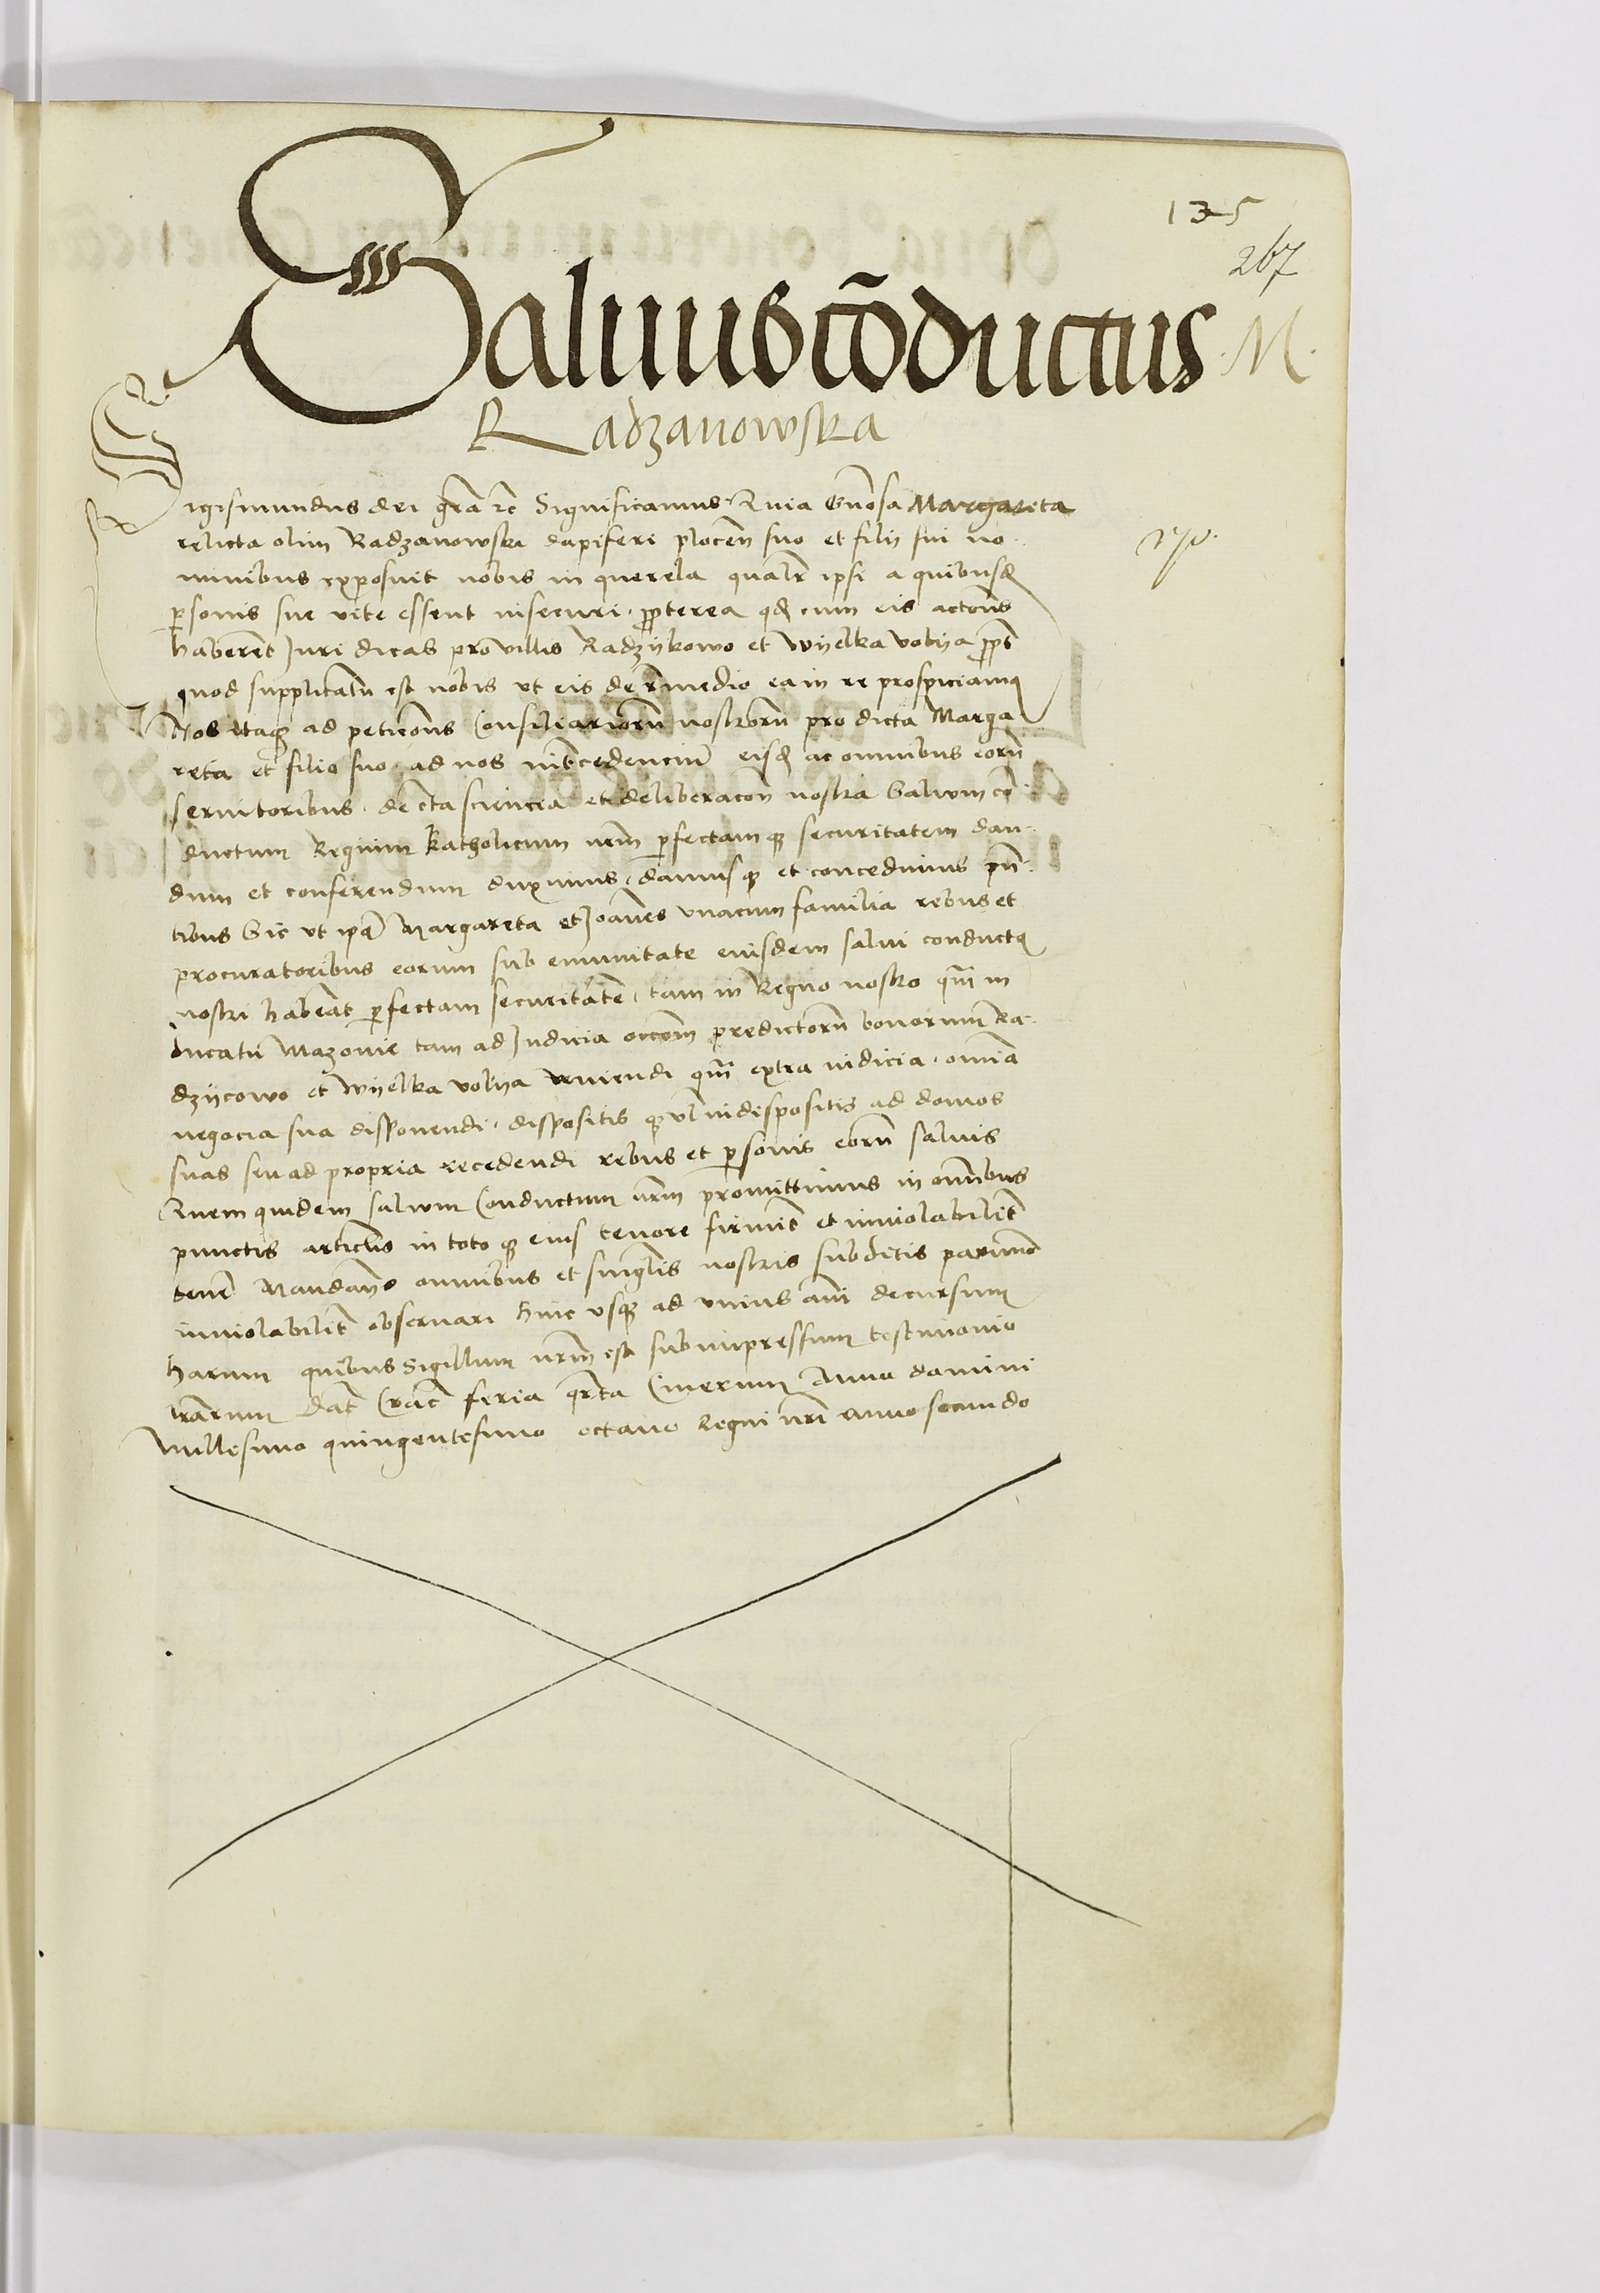 135
267
Saluus cōductus .M.
Radzanowska
Sigismundus dei grā rc Significamus Quia Gnōsa Margareta
relicta olim Radzanowski dapiferi plocen̄ suo et filij sui no
minibus exposuit nobis in querela qualr̄ ipsi a quibusd
personis sue vite essent insecuri propterea qd cum eis actōnes
haberent Juridicas pro villis Radzijkowo et Wijelka volija ppt
quod supplicatū est nobis vt eis de rēmedio ea in re prospiciamus
Nos itaq ad peticōns Consiliariorū nostrorū pro dicta Marga
reta et filio suo ad nos intēcedenciū eisd ac omnibus eorū
seruitoribus de certa sciencia et deliberacōn nostra Saluum con
ductum Regium katholicum nrm̄ perfectamq securitatem dan
dum et conferendum duximus damusq et concedimus pn̄
tibus Sic vt ipa Margareta et Joānes vnacum familia rebus et
procuratoribus eorum sub emunitate eiusdem salui conductus
nostri habeāt perfectam securitatē tam in Regno nostro qm̄ in
ducatu Mazouie tam ad Judicia occōne predictorū bonorum Ra
dzijcowo et Wijelka volija veniendi qm̄ extra iudicia omīa
negocia sua disponendi dispositis q vl indispositis ad domos
suas seu ad propria recedendi rebus et personis eorū saluis
Quem quidem saluum Conductum nrm̄ promittimus in omībus
punctis articlis in toto q eius tenore firmit̄ et inuiolabilit̄
tener̄ Mandan̄s omnibus et singlis nostris subditis parimod
inuiolabilit̄ obseruari hinc vsq ad vnius an̄i decursum
harum quibus Sigillum nrm̄ est subimpressum testimonio
lr̄arum Dat̄ Crac̄ feria qrta Cinerum Anno domini
Millesimo quingentesimo octauo Regni nrī anno secundo